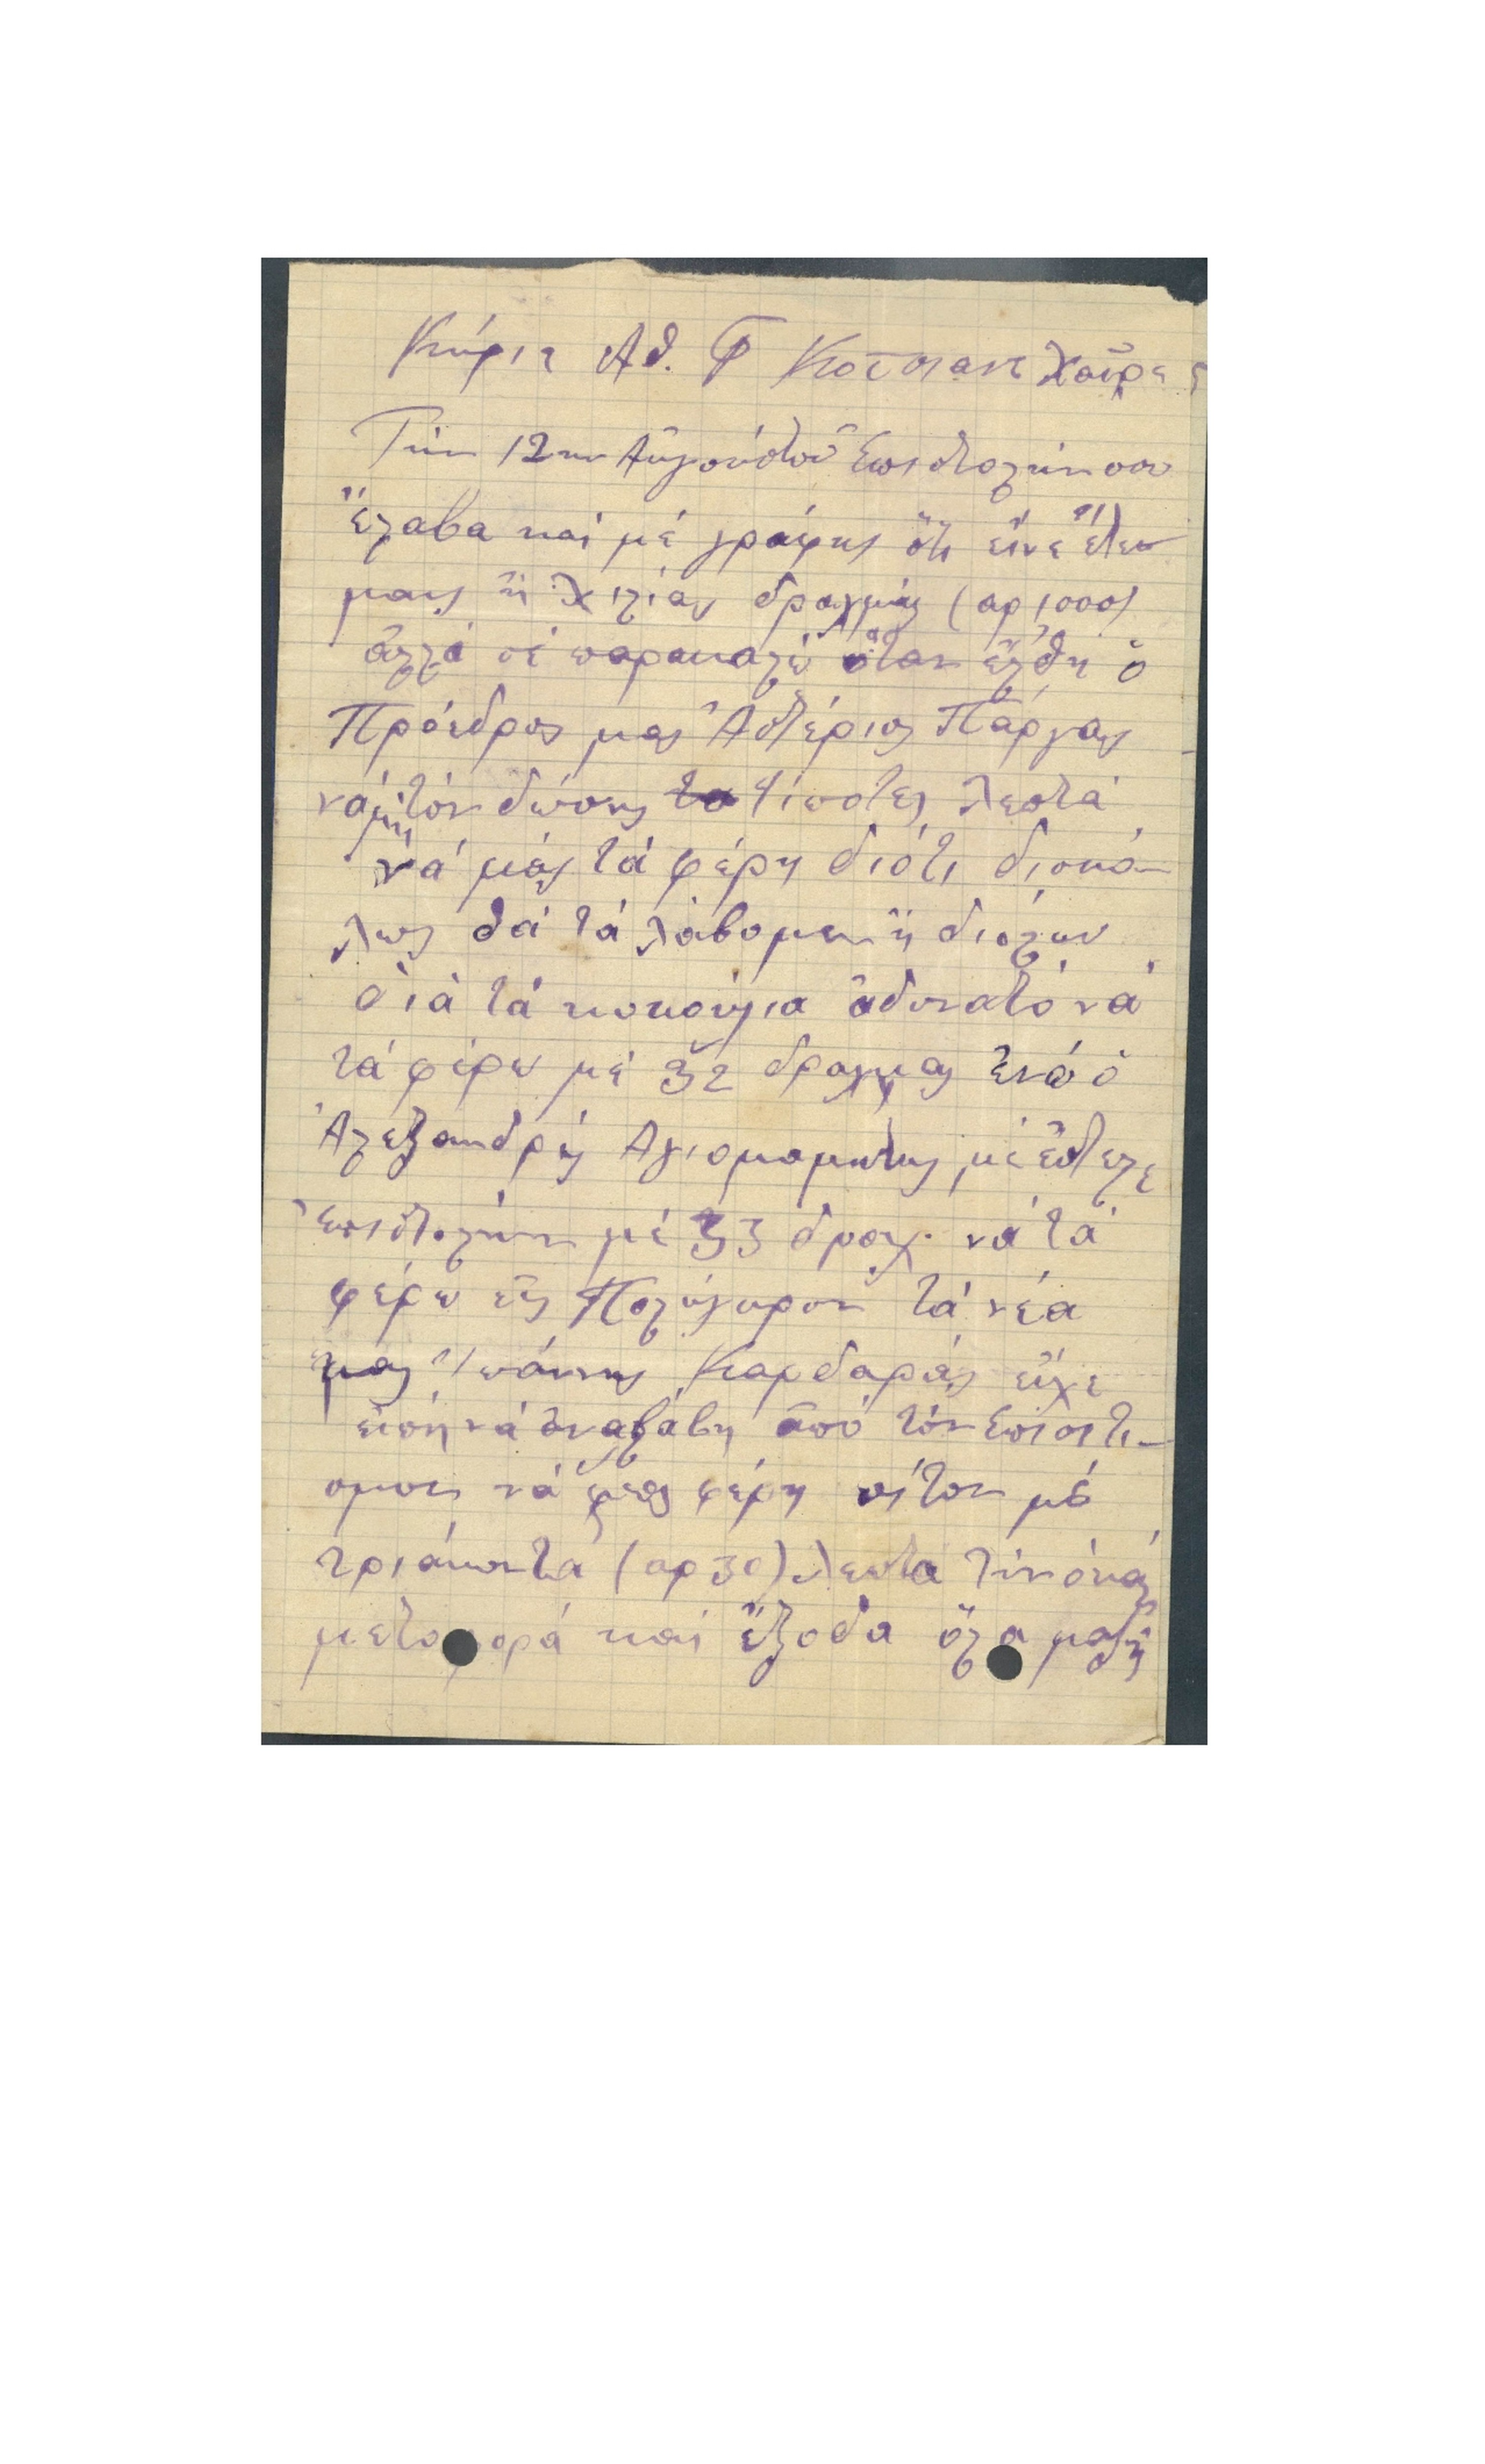 Κύριε Αθ. Φ Κότσιανε Χαῖρε
Τήν 12ην Αὐγούστοῦ Ἐπιστολήν σου
ἔλαβα καί μέ γράφης ὅτι εἶνε ἕτει
μαις ἡ Χιλίαις δραχμάς (αρ 1000)
ἀλλά σέ παρακαλῶ ὅταν ἔλθη ὁ
Πρόεδρος μας Ἀστέριος Πάργας
νά μή τόν δώσης τίποτες λεπτά
νά μάς τά φέρη διότι δισκό
λως θά τά λάβομεν ἤ διόλων
διά τά κουκούλια ἀδυνατό νά
τά φέρω μέ 32 δραχμας ἐνῶ ὁ
Ἀλεξανδρής Αγιομαμίτης μέ ἔστελε
ἐπιστολήν μέ 33 δραχ. νά τά
φέρω εἰς Πολύγυρον τά νέα
μας Ἰωάννης Καρδαράς εἶχε
εἰπῆ νά ἀναλάβη ἀπό τόν Ἐπισιτι
σμον νά μας φέρη σίτον μέ
τριάκοντα (αρ 30) λεπτά τήν ὀκά
μεταφορά καί ἔξοδα ὅλα μαζῆ